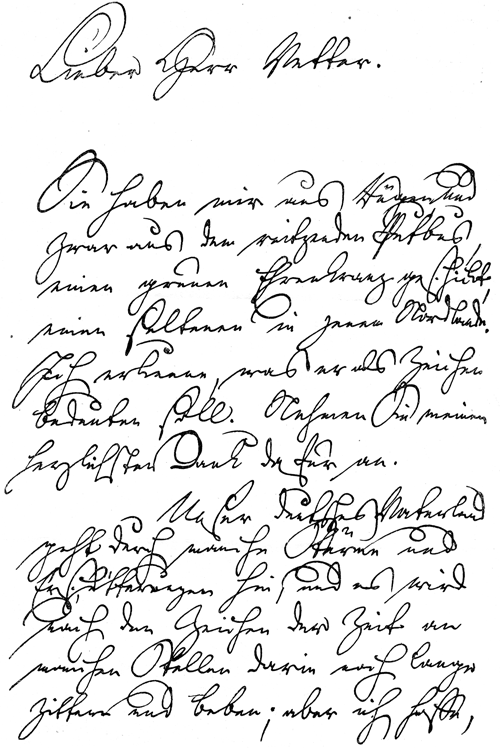 Lieber Herr Vetter.
Sie haben mir aus Rügen und
zwar aus dem reitzenden Putbus,
einen grünen Ehrenkranz geschickt,
einen seltenen in jenem Nordlande.
Ich erkenne, was er als Zeichen
bedeuten soll. Nehmen Sie meinen
herzlichsten Dank dafür an.
Unser deutsches Vaterland
geht durch manche Stürme und
Erschütterungen hin, und es wird
nach den Zeichen der Zeit an
manchen Stellen darin noch lange
zittern und beben; aber ich hoffe,